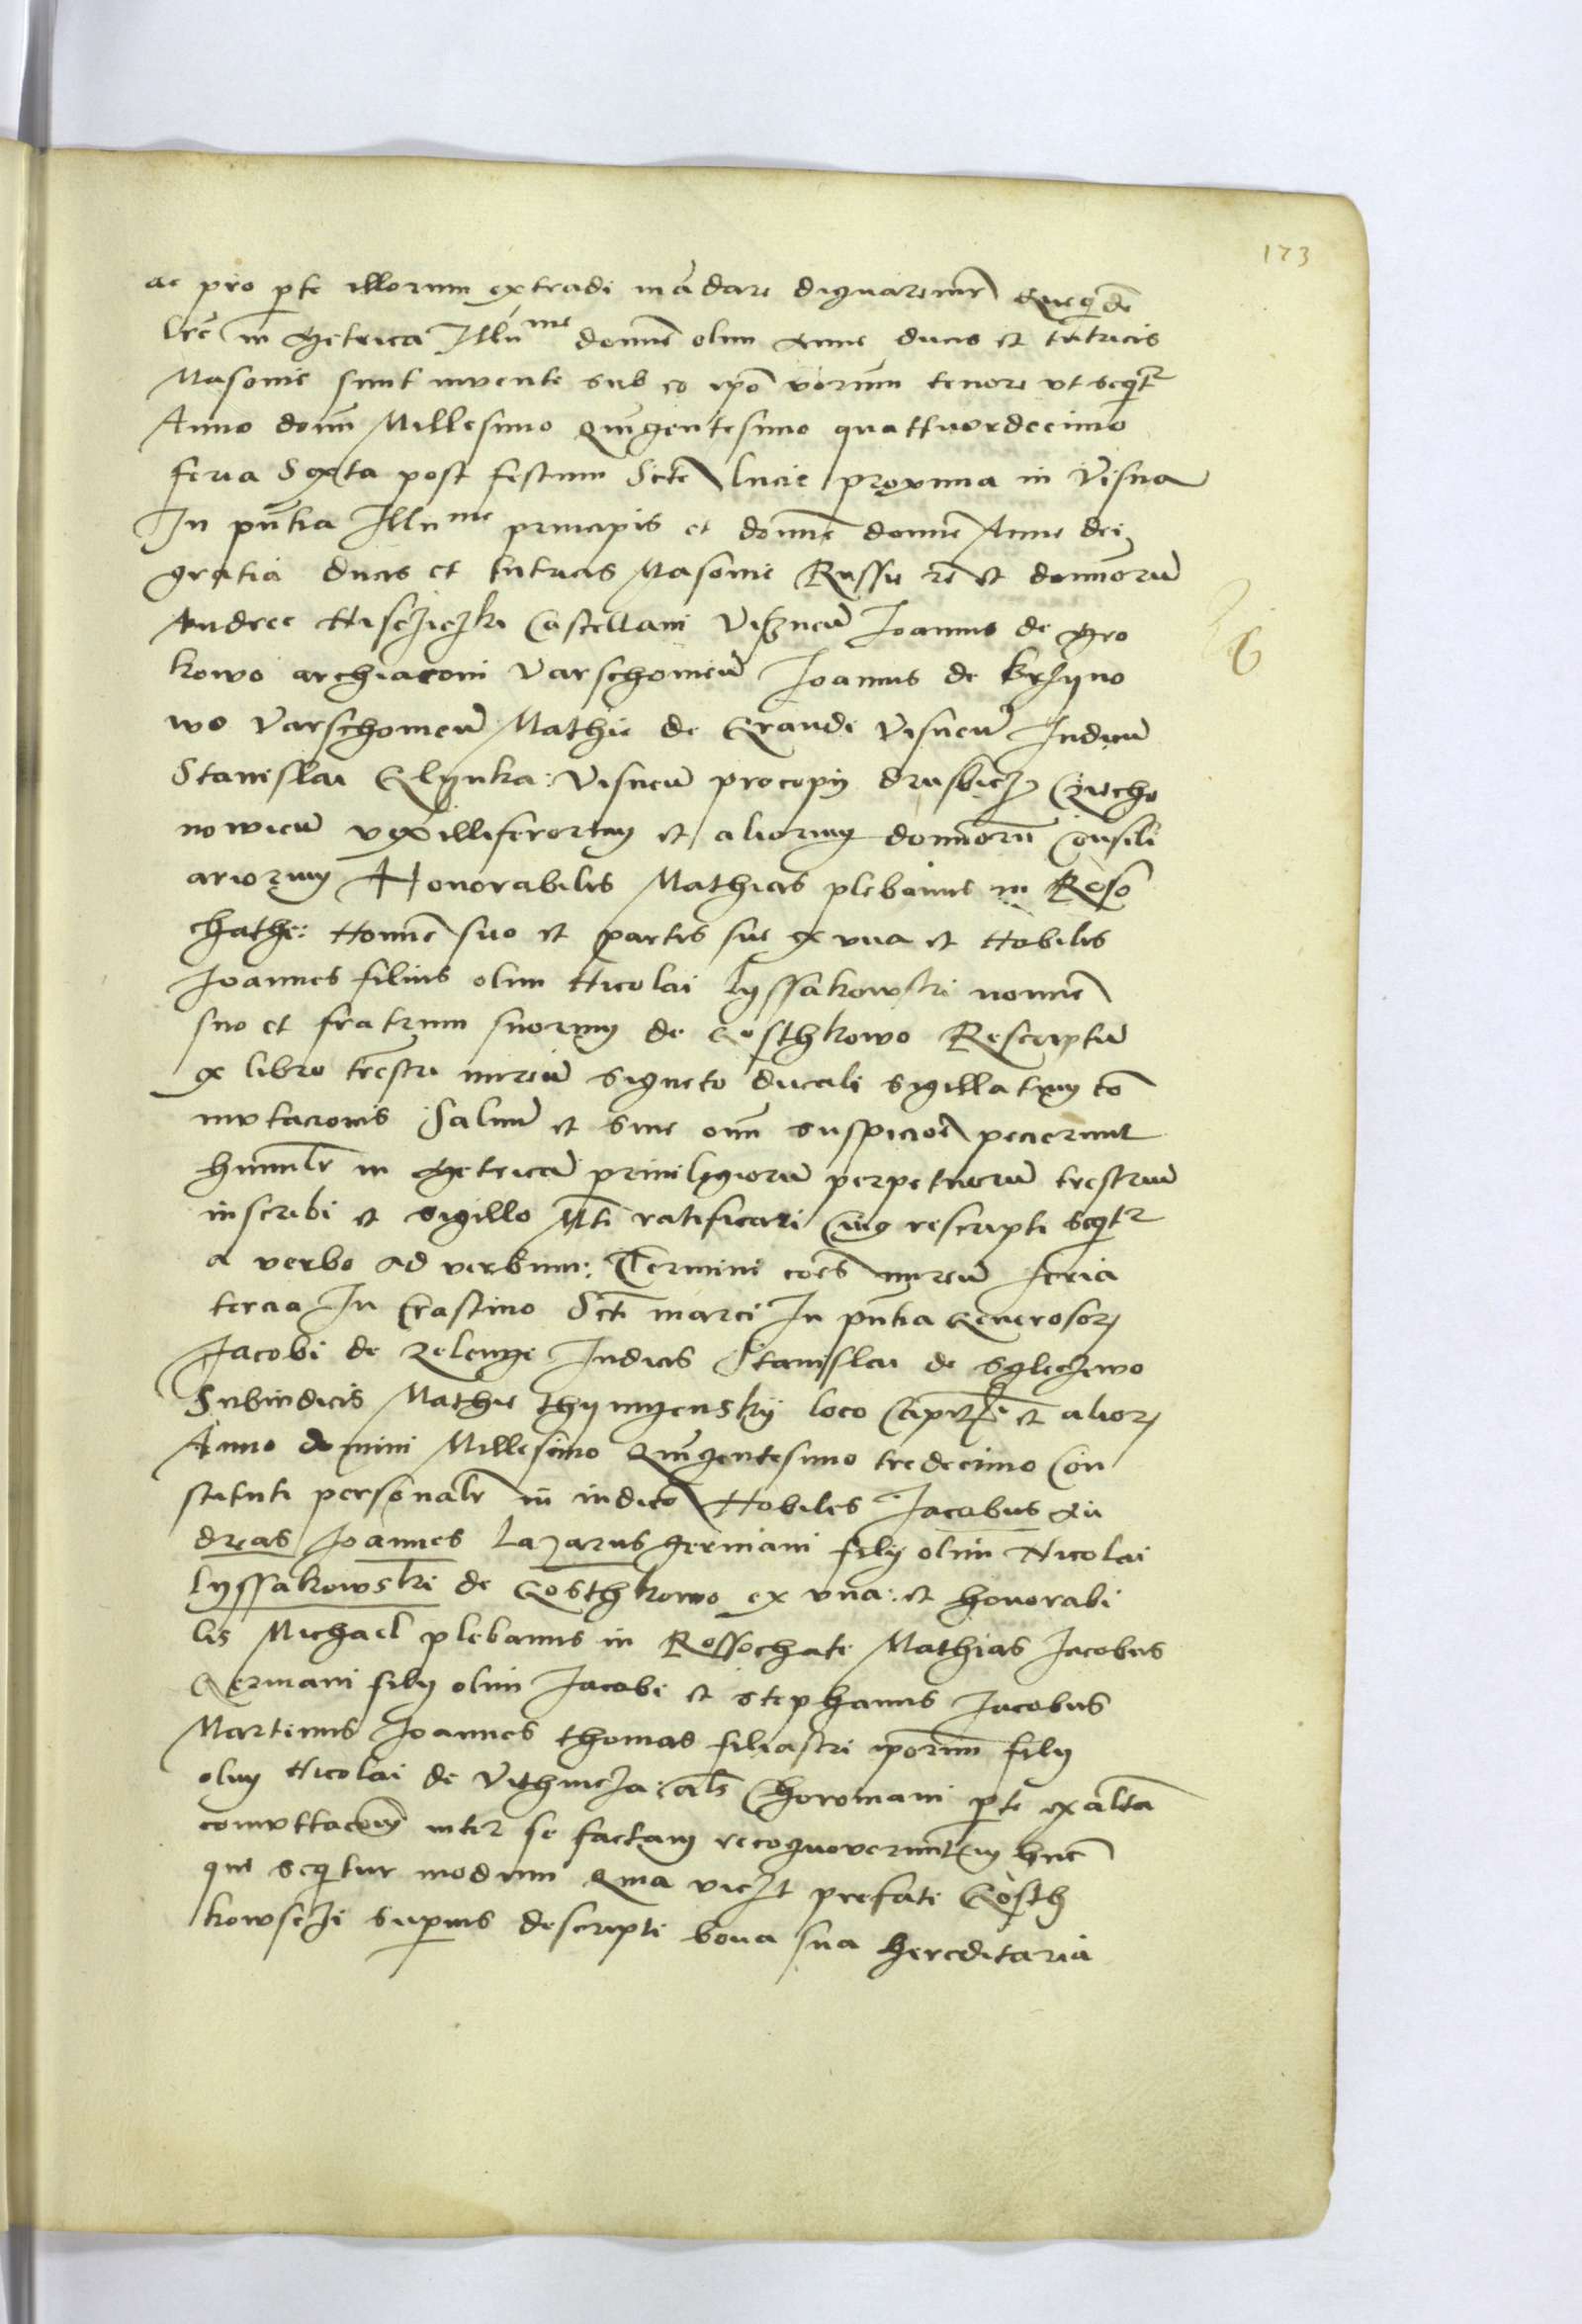 173
ac pro pte illorum extradi mādare dignaremr Queq̄dē
lrē in Metrica Illūme domnē olim Anne ducis et tutricis
Masouie sunt inuente sub eo ipō verum tenore vt seq̄tr
Anno domī Millesimo Quīgentesimo quattuordecimo
feria Sexta post festum Scte Lucie proxima in Visna
In pn̄tia Illūme principis et domnē domnē Anne dei
gratia ducis et tutricis Masouie Russie rē et domnorū
Andree Niscziczki Castellani Visznēn Joannis de Gro
kowo archiaconi Varschouieñ Joannis de Krzyno
wo Varschouieñ Mathie de Grandi Visneñ Judicū
Stanislai Glynka: Visneñ procopij drusbicz Czecho
nowieñ vexilliferorum et aliorum domnorū Consili
ariorum Honorabilis Mathias plebanus in Roso
chathe: Nomnē suo et partis sue ex vna et Nobilis
Joannes filius olim Nicolai Lyssakowski nomnē
suo et fratrum suorum de Gosthkowo Rescriptū
ex libro trēstri nureñ signeto ducali sigillatum cō
mutacionis Saluū et sine omī suspiciōe pecierunt
humilr in Metricā priuiligiorū perpetuorū trestriuū
inscribi et sigillo Mti ratificari Cuius rescripti seq̄tr
a verbo ad verbum: Termini cōes nureñ feria
tercia In Crastino Scti marci In pn̄tia Generosor
Jacobi de Zelenge Judicis Stanislai de Sgleczewo
Subiudicis Mathie Thymyensky loco Capit et alior
Anno domini Millesimo Quīgentesimo tredecimo Con
stituti personalr in iudicō Nobiles Jacobus An
dreas Joannes Lazarus germani filij olim Nicolai
Lyssakowski de Gosthkowo ex vna: et honorabi
lis Michael plebanus in Rossochate Mathias Jacobus
Germani filij olim Jacobi et Stephanus Jacobus
Martinus Joannes Thomas filiastri ipōrum filij
olim Nicolai de als Choromani pte ex altā
comuttacōnē inter se factam recognouerunt in hunc
qui seq̄tur modum Quia viczt prefati Gosth
kowsczi superius descripti bona sua hereditaria